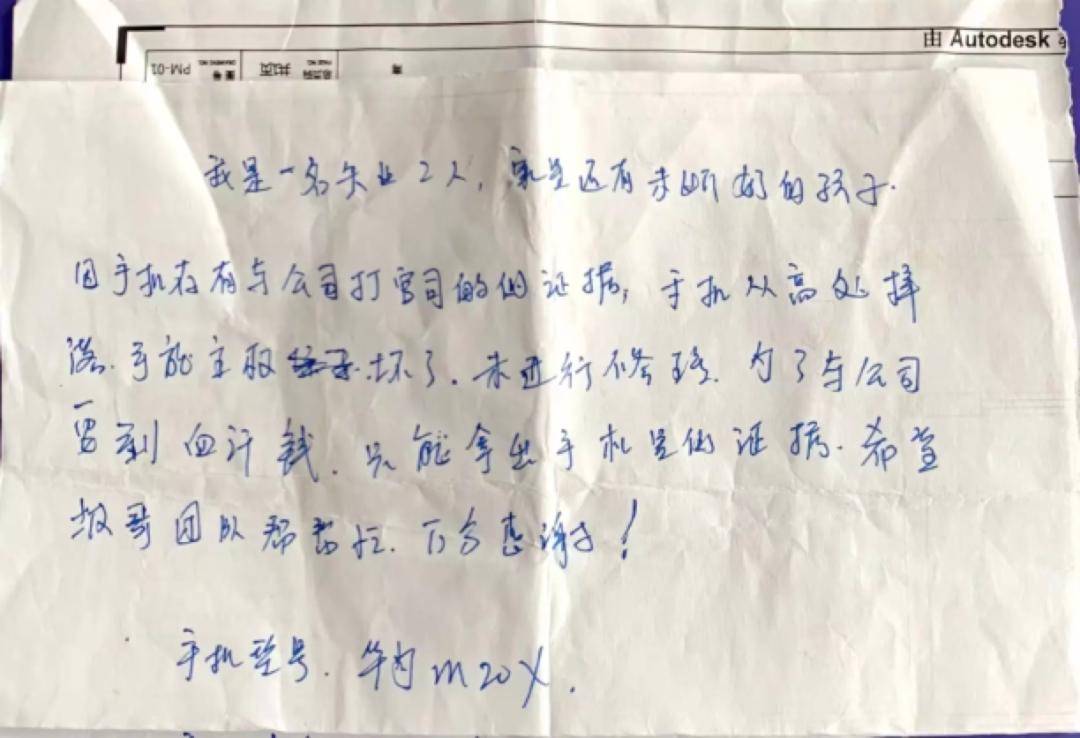 由 Autodesk
PM-01 图号 DRAWING NO. 共1页 总页码 PAGE NO.
我是一名失业工人,家里还有未断奶的孩子.
因手机存有与公司打官司的的证据,手机从高处摔
落.导致主板坏了.未进行修理.为了与公司
要到血汗钱.只能拿出手机里的证据.希望
级哥团队帮帮忙.万分感谢!
手机型号.华为m20X.